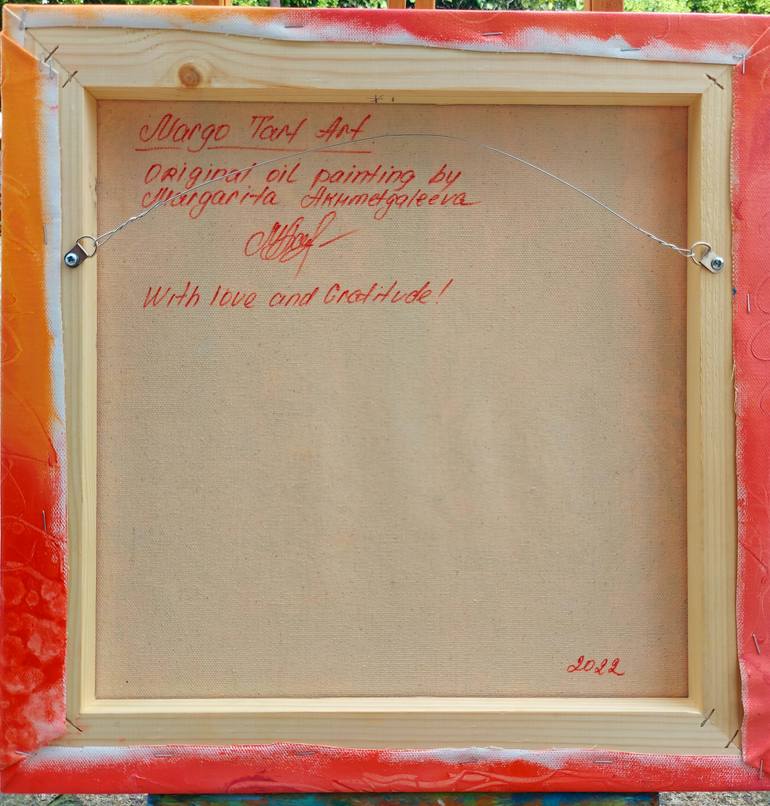 Margo Tart Art
Original oil painting by
Margarita Akhmetgaleeva
With love and Gratitude!
2022